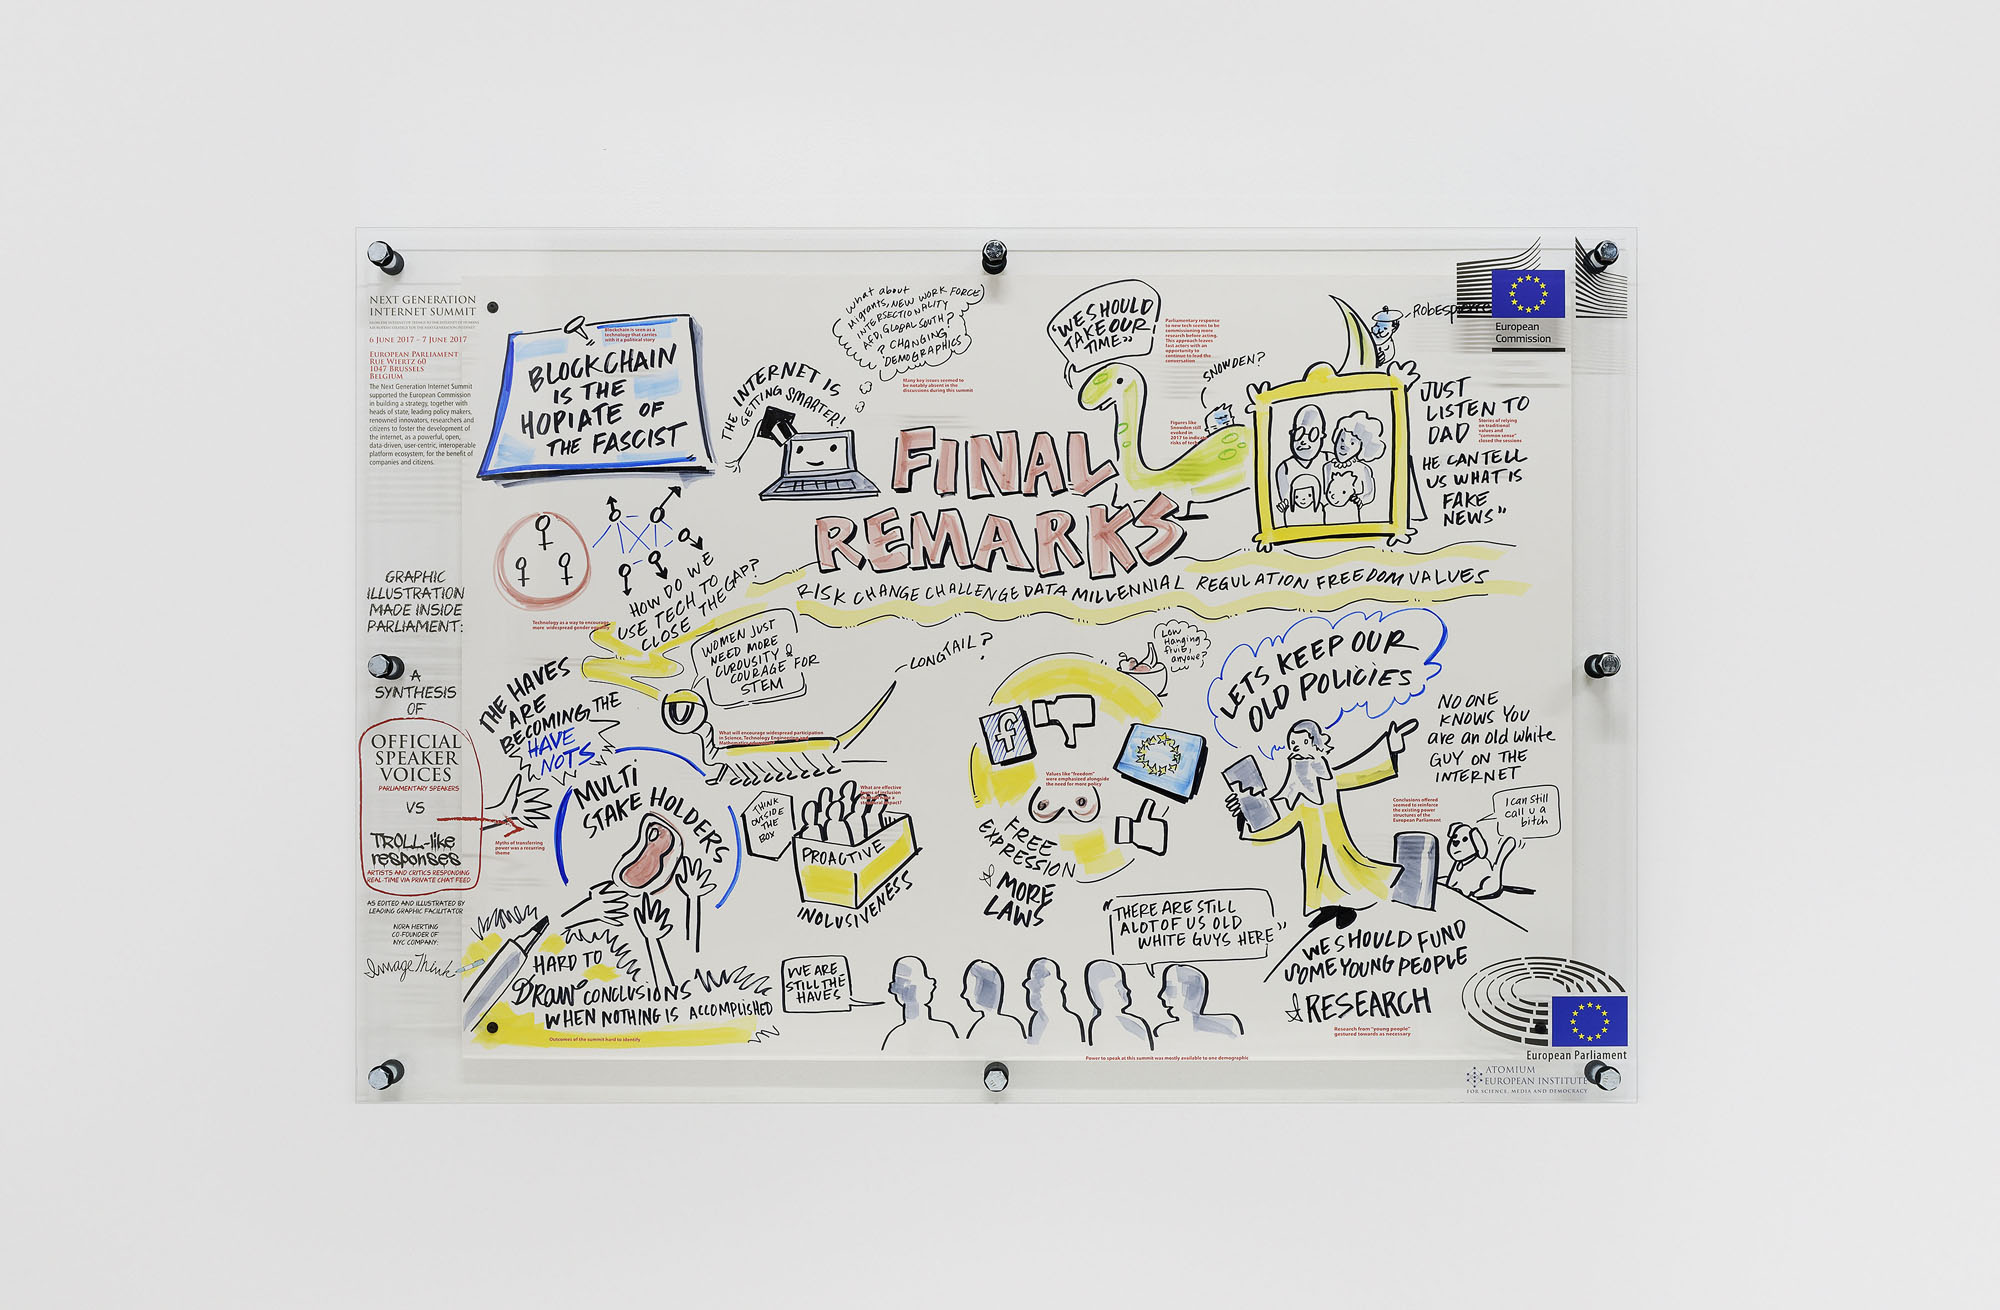 NEXT GENERATION
INTERNET SUMMIT
6 JUNE 2017 - 7 JUNE 2017
EUROPEAN PARLIAMENT
RUE WIERTZ 60
1047 BRUSSELS
BELGIUM
The Next Generation Internet Summit
supported the European Commission
in building a strategy, together with
heads of state, leading policy makers,
renowned innovators, researchers and
citizens to foster the development of
the internet, as a powerful, open,
data-driven, user-centric, interoperable
platform ecosystem, for the benefit of
companies and citizens.
GRAPHIC
ILLUSTRATION
MADE INSIDE
PARLIAMENT:
A
SYNTHESIS
OF
OFFICIAL
SPEAKER
VOICES
PARLIAMENTARY SPEAKERS
VS
TROLL-like
responses
ARTISTS AND CRITICS RESPONDING
REAL-TIME VIA PRIVATE CHAT FEED
AS EDITED AND ILLUSTRATED BY
LEADING GRAPHIC FACILITATOR
NORA HERTING
CO-FOUNDER OF
NYC COMPANY:
ImageThink
Blockchain is seen as a
technology that carries
with it a political story
BLOCKCHAIN
IS THE
HOPIATE OF
THE FASCIST
THE INTERNET IS
GETTING SMARTER!
What about
Migrants, NEW WORK FORCE
INTERSECTIONALITY
AFD, GLOBAL SOUTH?
? CHANGING
DEMOGRAPHICS
Many key issues seemed to
be notably absent in the
discussions during this summit
"WE SHOULD
TAKE OUR
TIME"
Parliamentary response
to new tech seems to be
commissioning more
research before acting.
This approach leaves
fast actors with an
opportunity to
continue to lead the
conversation
SNOWDEN?
Figures like
Snowden still
evoked in
2017 to indicate
risks of tech
Robespierre
European
Commission
JUST
LISTEN TO
DAD
HE CAN TELL
US WHAT IS
FAKE
NEWS"
Stories of relying
on traditional
values and
"common sense"
closed the sessions
FINAL
REMARKS
RISK CHANGE CHALLENGE DATA MILLENNIAL REGULATION FREEDOM VALUES
HOW DO WE
USE TECH TO
CLOSE THE GAP?
Technology as a way to encourage
more widespread gender equality
WOMEN JUST
NEED MORE
CURIOSITY &
COURAGE FOR
STEM
LONGTAIL?
What will encourage widespread participation
in Science, Technology Engineering and
THE HAVES
ARE
BECOMING THE
HAVE
NOTS
Myths of transferring
power was a recurring
theme
MULTI
STAKE HOLDERS
THINK
OUTSIDE
THE
BOX
What are effective
PROACTIVE
INCLUSIVENESS
Low
Hanging
fruit,
anyone?
f
Values like "freedom"
were emphasized alongside
the need for more policy
FREE
EXPRESSION
& MORE
LAWS
LETS KEEP OUR
OLD POLICIES
NO ONE
KNOWS YOU
are an old white
GUY ON THE
INTERNET
Conclusions offered
seemed to reinforce
the existing power
structures of the
European Parliament
I can still
call u a
bitch
HARD TO
DRAW CONCLUSIONS
WHEN NOTHING IS ACCOMPLISHED
Outcomes of the summit hard to identify
WE ARE
STILL THE
HAVES
"THERE ARE STILL
ALOT OF US OLD
WHITE GUYS HERE"
Power to speak at this summit was mostly available to one demographic
WE SHOULD FUND
SOME YOUNG PEOPLE
& RESEARCH
Research from "young people"
gestured towards as necessary
European Parliament
ATOMIUM
EUROPEAN INSTITUTE
FOR SCIENCE, MEDIA AND DEMOCRACY